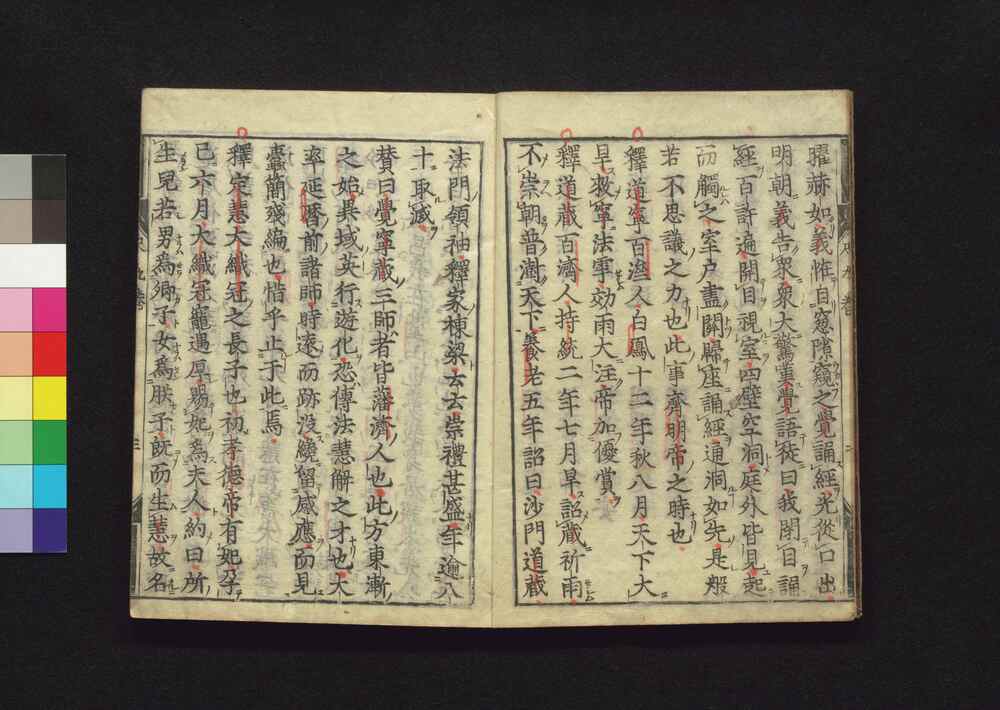 曜赫如義惟自窓隙窺之覺誦經光從口出
明朝義告衆衆大驚異覺語徒曰我閉目誦
經百許遍開目視室四壁空洞庭外皆見起
而觸之室戶盡關歸座誦經通洞如先是般
若不思議之力也此事齊明帝之時也
釋道寧百濟人白鳳十二年秋八月天下大
旱救寧法雩効雨大汪帝加優賞
釋道藏百濟人持統二年七月旱詔藏祈雨
不崇朝普澍天下養老五年詔曰沙門道藏
法門領袖釋家棟梁云云崇禮甚盛年逾八
十取滅
賛曰覺寧藏三師者皆藩濟人也此方東漸
之始異域英行遊化恋傳法慧解之才也大
率延曆前諸師時遠而跡没繞留感應而見
蠹簡殘編也惜乎止于此焉
釋定慧大織冠之長子也初孝德帝有妃孕
已六月大織冠寵遇厚賜妃爲夫人約曰所
生兒若男爲卿子女爲朕子既而生慧故名